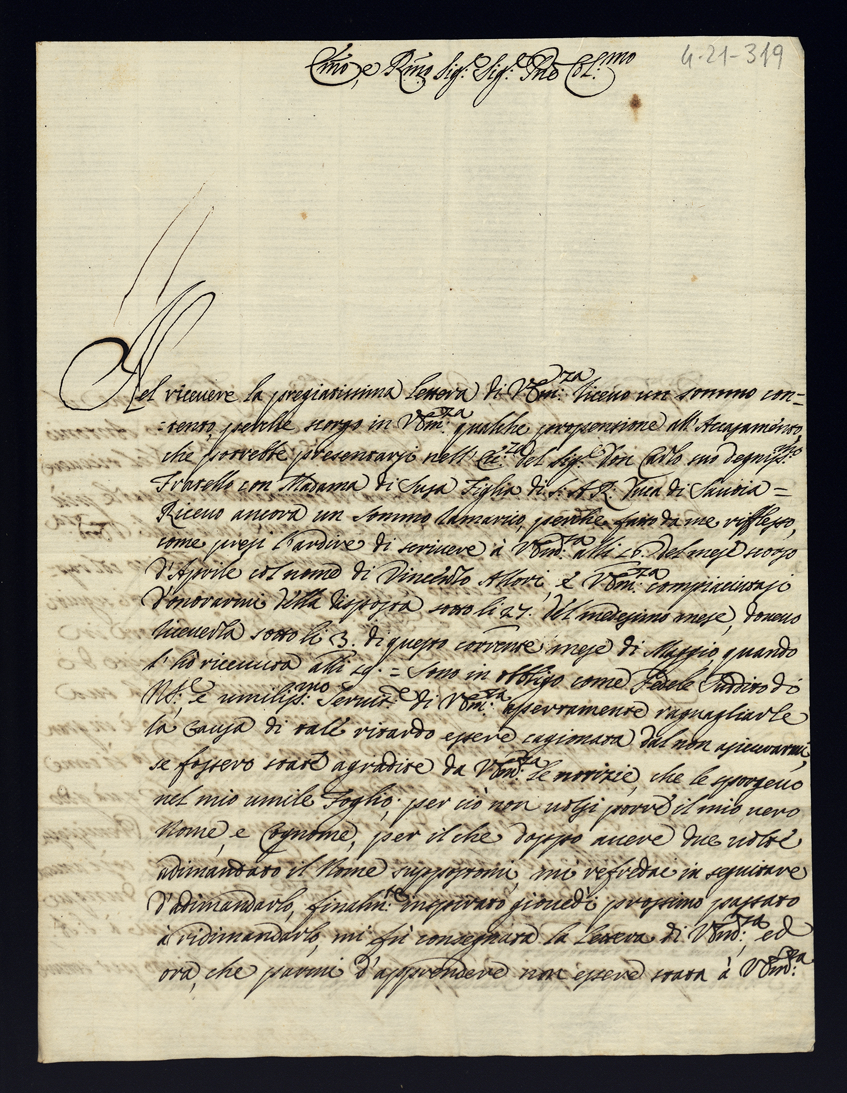 4-21-319
Emo, e Rmo Sig.e Sig.e Pne Col.mo
Nel riceuere la pregiatissima lettera di V. Em:za riceuo un sommo con=
=tento, perche scorgo in V. Em:za qualche propensione all'Accasamento,
che potrebbe presentarsi nell' del Sig.e Don Carlo suo degniss:mo
Fratello con Madama di Susa Figlia di S. A. R. Duca di Sauoia =
Riceuo ancora un sommo ramarico, perche fatto da me rifflesso,
come presi l'ardire di scriuere à V. Em:za alli 26. del mese scorso
d'Aprile col nome di Vincenzo Allori, è V. Em:za compiaciutasi
d'honorarmi della risposta sotto li 27. del medesimo mese, doueuo
riceuerla sotto li 3. di questo corrente mese di Maggio quando
l'hò riceuuta alli = Sono in obbligo come Fedele
e umiliss:mo Seruit.e di V. Em:za apertamente raguagliarle
la causa di tall ritardo essere cagionata dal non asicurarmi,
se fossero state agradite da V. Em:za le notizie, che le sporgeuo
nel mio umile Foglio; per ciò non uolsi porre il mio uero
Nome, e Cognome, per il che doppo auere due uolte
adimandato il Nome suppostomi mi refredai in seguitare
d'adimandarlo, finalm:te inspirato giouedi prossimo passato
à ridimandarlo, mi fù consegnata la lettera di V. Em:za, ed
ora, che parmi d'apprendere non essere stata à V. Em:za